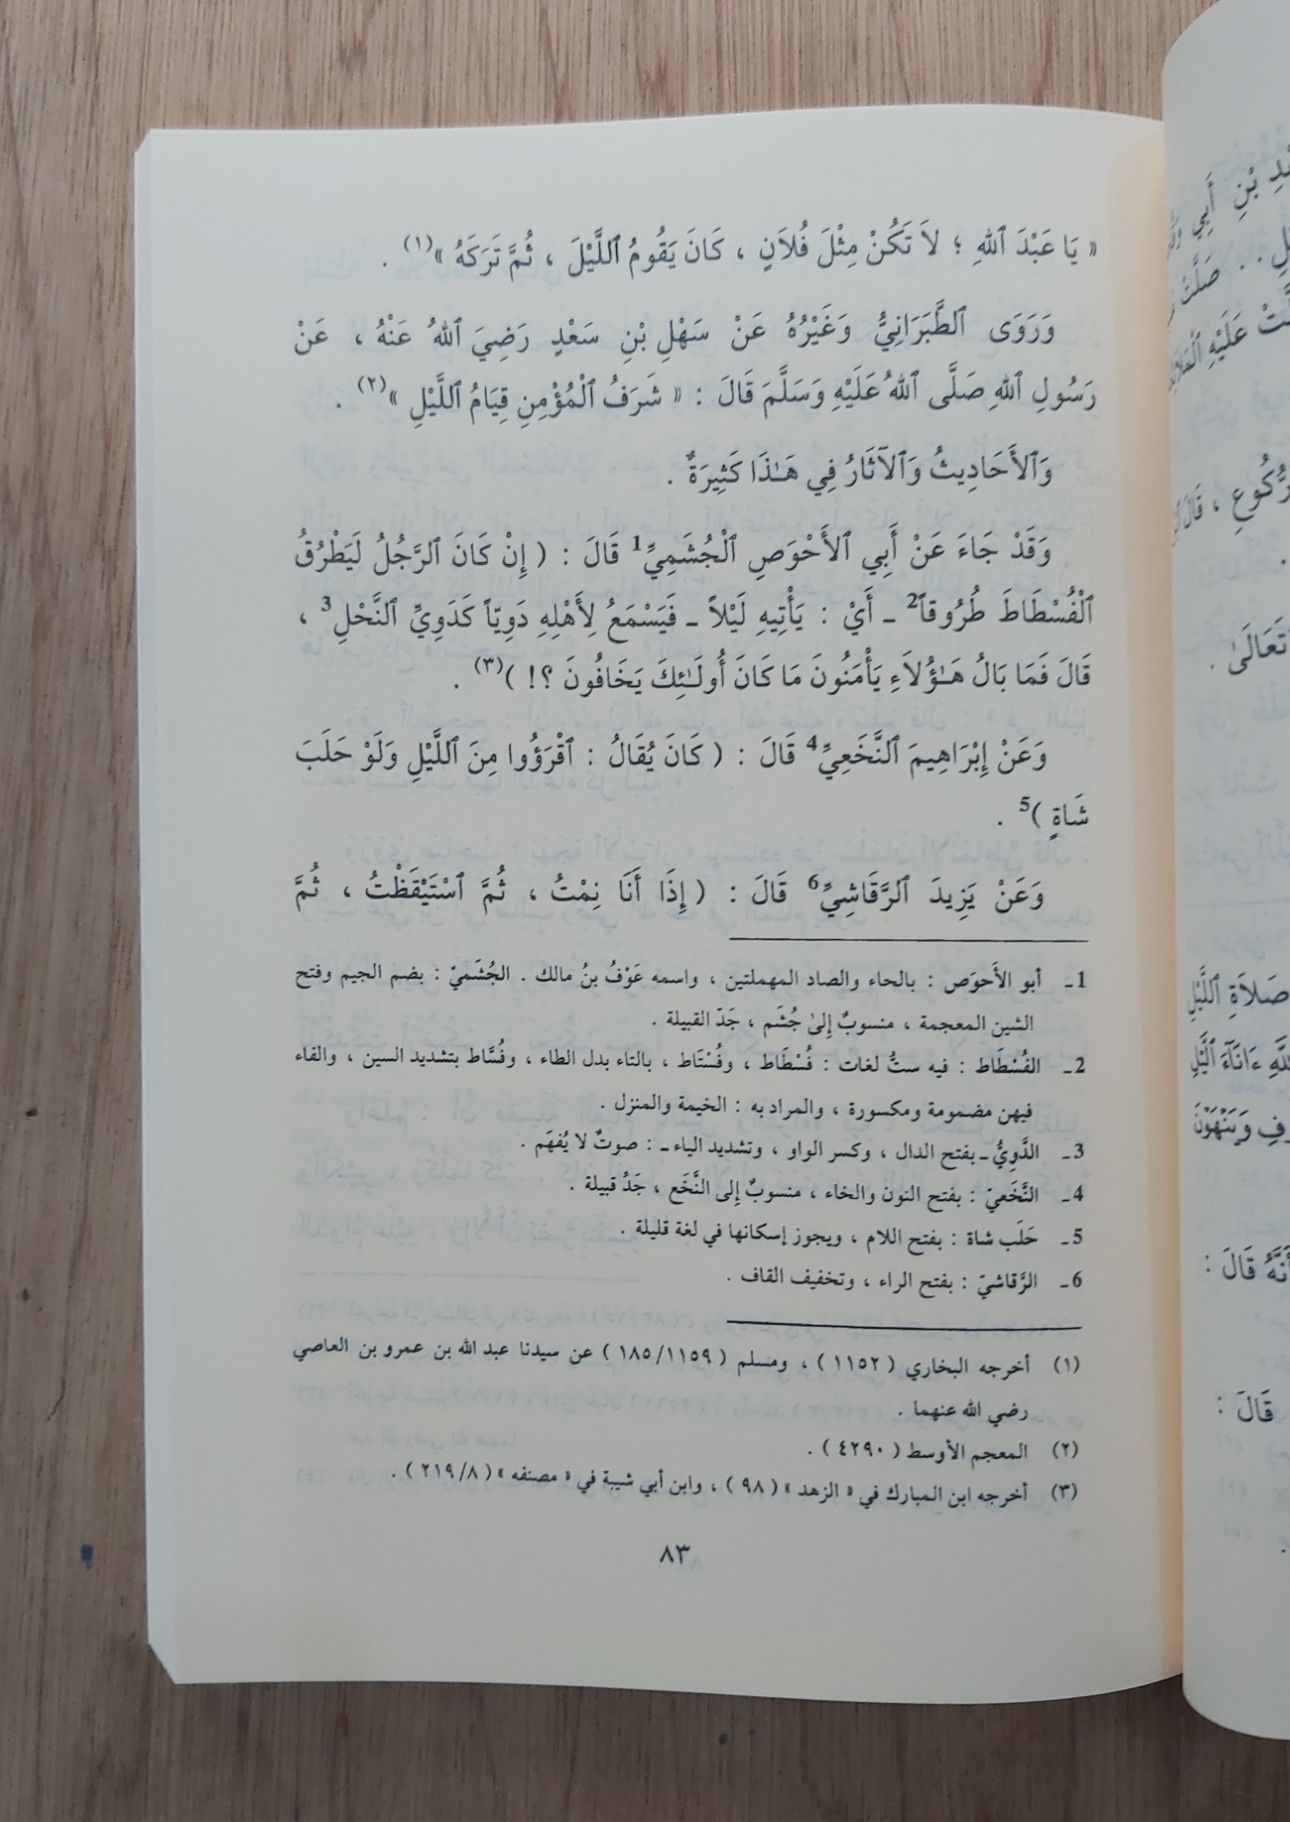 « يَا عَبْدَ ٱللهِ ؛ لاَ تَكُنْ مِثْلَ فُلاَنٍ ، كَانَ يَقُومُ ٱللَّيْلَ ، ثُمَّ تَرَكَهُ »(١) .
وَرَوَى ٱلطَّبَرَانِيُّ وَغَيْرُهُ عَنْ سَهْلِ بْنِ سَعْدٍ رَضِيَ ٱللهُ عَنْهُ ، عَنْ
رَسُولِ ٱللهِ صَلَّى ٱللهُ عَلَيْهِ وَسَلَّمَ قَالَ : « شَرَفُ ٱلْمُؤْمِنِ قِيَامُ ٱللَّيْلِ »(٢) .
وَٱلأَحَادِيثُ وَٱلآثَارُ فِي هَـٰذَا كَثِيرَةٌ .
وَقَدْ جَاءَ عَنْ أَبِي ٱلأَحْوَصِ ٱلْجُشَمِيِّ1 قَالَ : ( إِنْ كَانَ ٱلرَّجُلُ لَيَطْرُقُ
ٱلْفُسْطَاطَ طُرُوقاً2 ـ أَيْ : يَأْتِيهِ لَيْلاً ـ فَيَسْمَعُ لِأَهْلِهِ دَوِيّاً كَدَوِيِّ ٱلنَّحْلِ3 ،
قَالَ فَمَا بَالُ هَـٰؤُلاَءِ يَأْمَنُونَ مَا كَانَ أُولَـٰئِكَ يَخَافُونَ ؟! )(٣) .
وَعَنْ إِبْرَاهِيمَ ٱلنَّخَعِيِّ4 قَالَ : ( كَانَ يُقَالُ : ٱقْرَؤُوا مِنَ ٱللَّيْلِ وَلَوْ حَلَبَ
شَاةٍ )5 .
وَعَنْ يَزِيدَ ٱلرَّقَاشِيِّ6 قَالَ : ( إِذَا أَنَا نِمْتُ ، ثُمَّ ٱسْتَيْقَظْتُ ، ثُمَّ
1ـ أبو الأَحوَص : بالحاء والصاد المهملتين ، واسمه عَوْفُ بنُ مالك . الجُشَميّ : بضم الجيم وفتح
الشين المعجمة ، منسوبٌ إلىٰ جُشَم ، جَدّ القبيلة .
2ـ الفُسْطَاط : فيه ستُّ لغات : فُسْطَاط ، وفُسْتَاط ، بالتاء بدل الطاء ، وفُسَّاط بتشديد السين ، والفاء
فيهن مضمومة ومكسورة ، والمراد به : الخيمة والمنزل .
3ـ الدَّوِيُّ ـ بفتح الدال ، وكسر الواو ، وتشديد الياء ـ : صوتٌ لا يُفهَم .
4ـ النَّخَعيّ : بفتح النون والخاء ، منسوبٌ إلى النَّخَع ، جَدُّ قبيلة .
5ـ حَلَب شاة : بفتح اللام ، ويجوز إسكانها في لغة قليلة .
6ـ الرَّقاشيّ : بفتح الراء ، وتخفيف القاف .
(١) أخرجه البخاري ( ١١٥٢ ) ، ومسلم ( ١٨٥/١١٥٩ ) عن سيدنا عبد الله بن عمرو بن العاصي
رضي الله عنهما .
(٢) المعجم الأوسط ( ٤٢٩٠ ) .
(٣) أخرجه ابن المبارك في « الزهد » ( ٩٨ ) ، وابن أبي شيبة في « مصنفه » ( ٢١٩/٨ ) .
٨٣